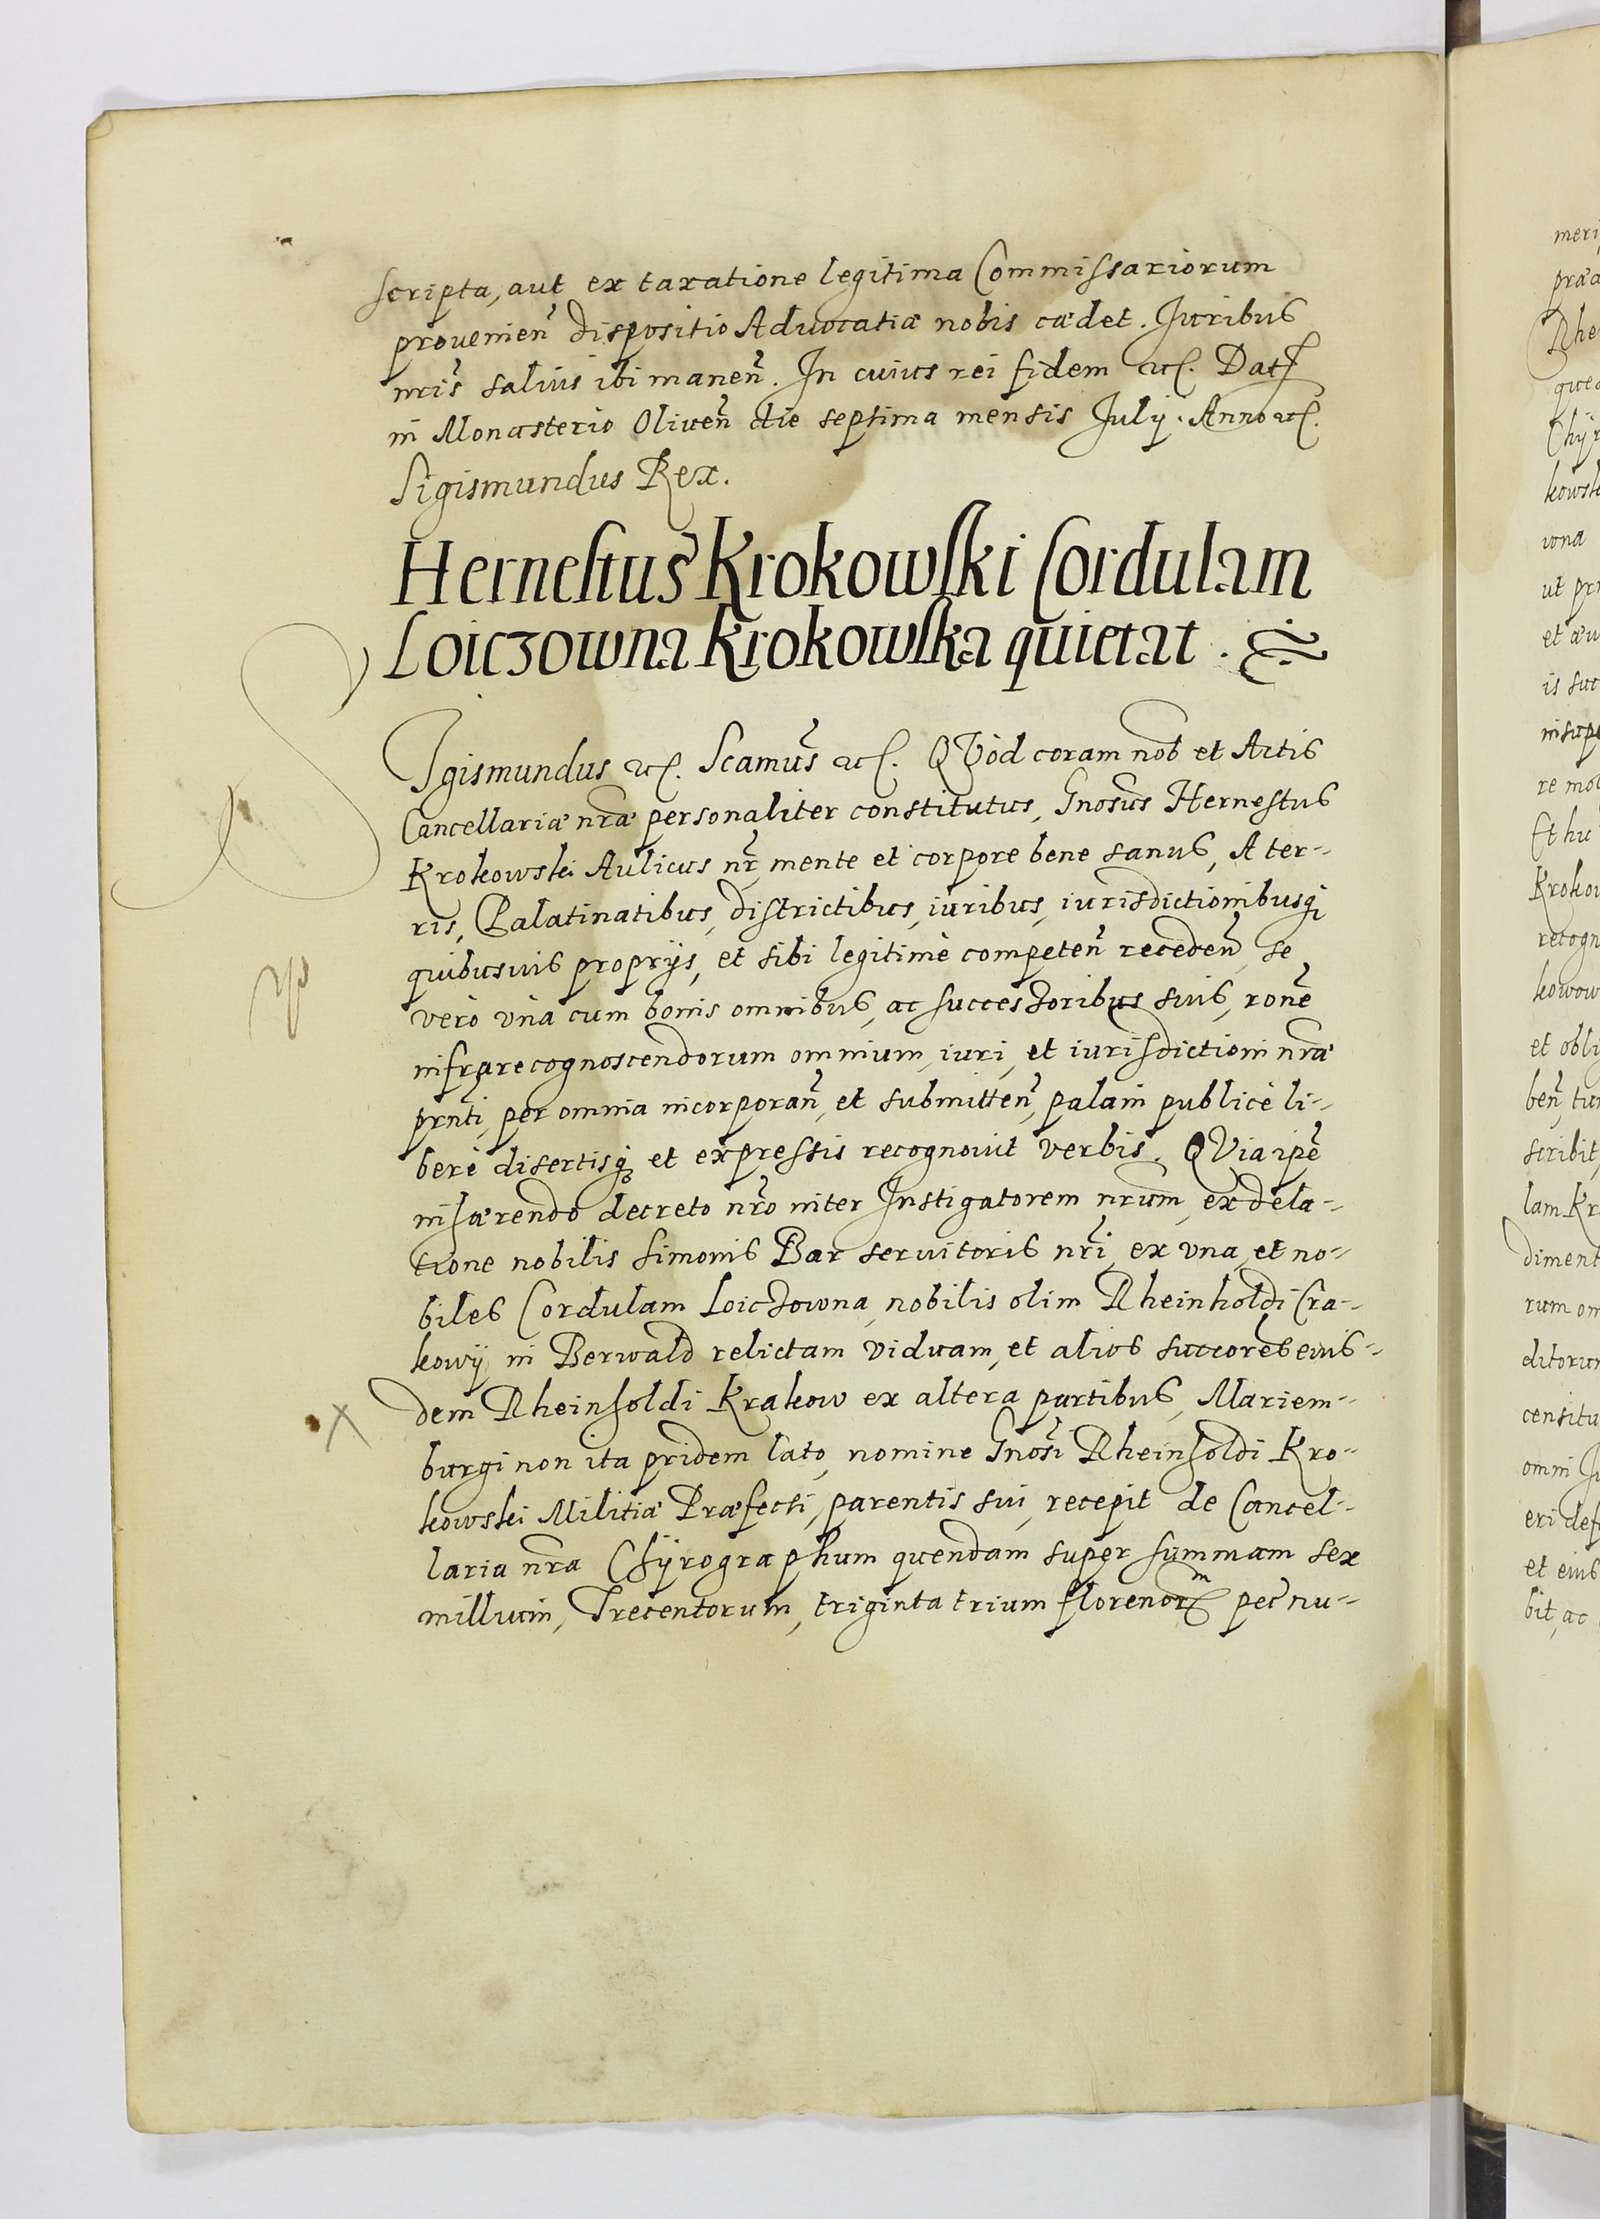 scripta, aut ex taxatione legitima Commissariorum
prouenien̄ dispositio Aduocatiæ nobis cædet. Iuribus
nr̄is saluis ibi manen̄. In cuius rei fidem etc. Dat
in Monasterio Oliuen̄ die septima mensis Iulij. Anno etc.
Sigismundus Rex.
Hernestus Krokowski Cordulam
Loiczowna Krokowska quietat.
SIgismundus etc. Scamus̄ etc. QVod coram nob̄ et Actis
Cancellariæ nr̄æ personaliter constitutus, Gnosus̄ Hernestus
Krokowski Aulicus nr̄, mente et corpore bene sanus, A ter-
ris, Palatinatibus, districtibus, iuribus, iurisdictionibusq
quibusuis proprijs, et sibi legitimè competen̄ receden̄, se
verò vnà cum bonis omnibus, ac successoribus suis, ronē
infrarecognoscendorum omnium, iuri, et iurisdictioni nr̄æ
prn̄ti, per omnia incorporan̄, et submitten̄, palàm publicè li-
berè disertisq et expressis recognouit verbis. QVia ipē
inhærendo decreto nr̄o inter Instigatorem nr̄um, ex dela-
tione nobilis Simonis Bar seruitoris nr̄i, ex vna, et no-
biles Cordulam Loiczowna, nobilis olim Rheinholdi Cra-
kowij in Berwald relictam viduam, et alios succores̄ eius-
dem Rheinholdi Krakow ex altera partibus, Mariem-
burgi non ita pridem lato, nomine Gnosī Rheinholdi Kro-
kowski Militiæ Præfecti, parentis sui, recepit de Cancel-
laria nr̄a Chÿrographum quendam super summam sex
millium, Trecentorum, triginta trium florenorm pec̄ nu-
meri
præa
Rhe
kowsk
wona
et æu
is suc
insupe
re mo
Et hu
Krokow
recogn
kowow
et obli
ben̄, tu
scribit,
lam Kr
diment
rum om
ditorum
censitu
omni Iu
eri def
et eius
bit, ac